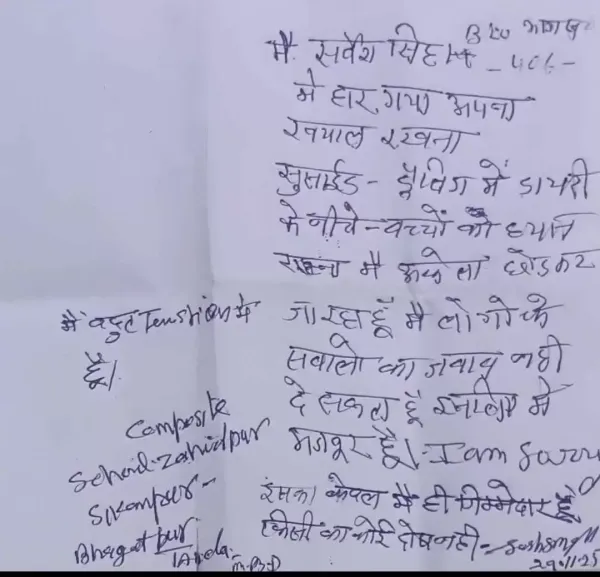 मै. सर्वेश सिंह
- 406 -
मे हार गया अपना
ख्याल रखना
सुसाईड - ड्रेसिंग में डायरी
के नीचे - बच्चों को ध्यान
रखना मै अकेला छोडकर
जा रहा हूँ मै लोगो के
सवालो का जवाब नही
दे सकता हूँ इसलिए मे
मजबूर हूँ। I am Sorry
इसका केवल मै ही जिम्मेदार हूँ
किसी का कोई दोष नही
29.11.25
मै बहुत Tenshion मे
हूँ।
Composite
School-Zahidpur
Sikampur-
Bhagatpur